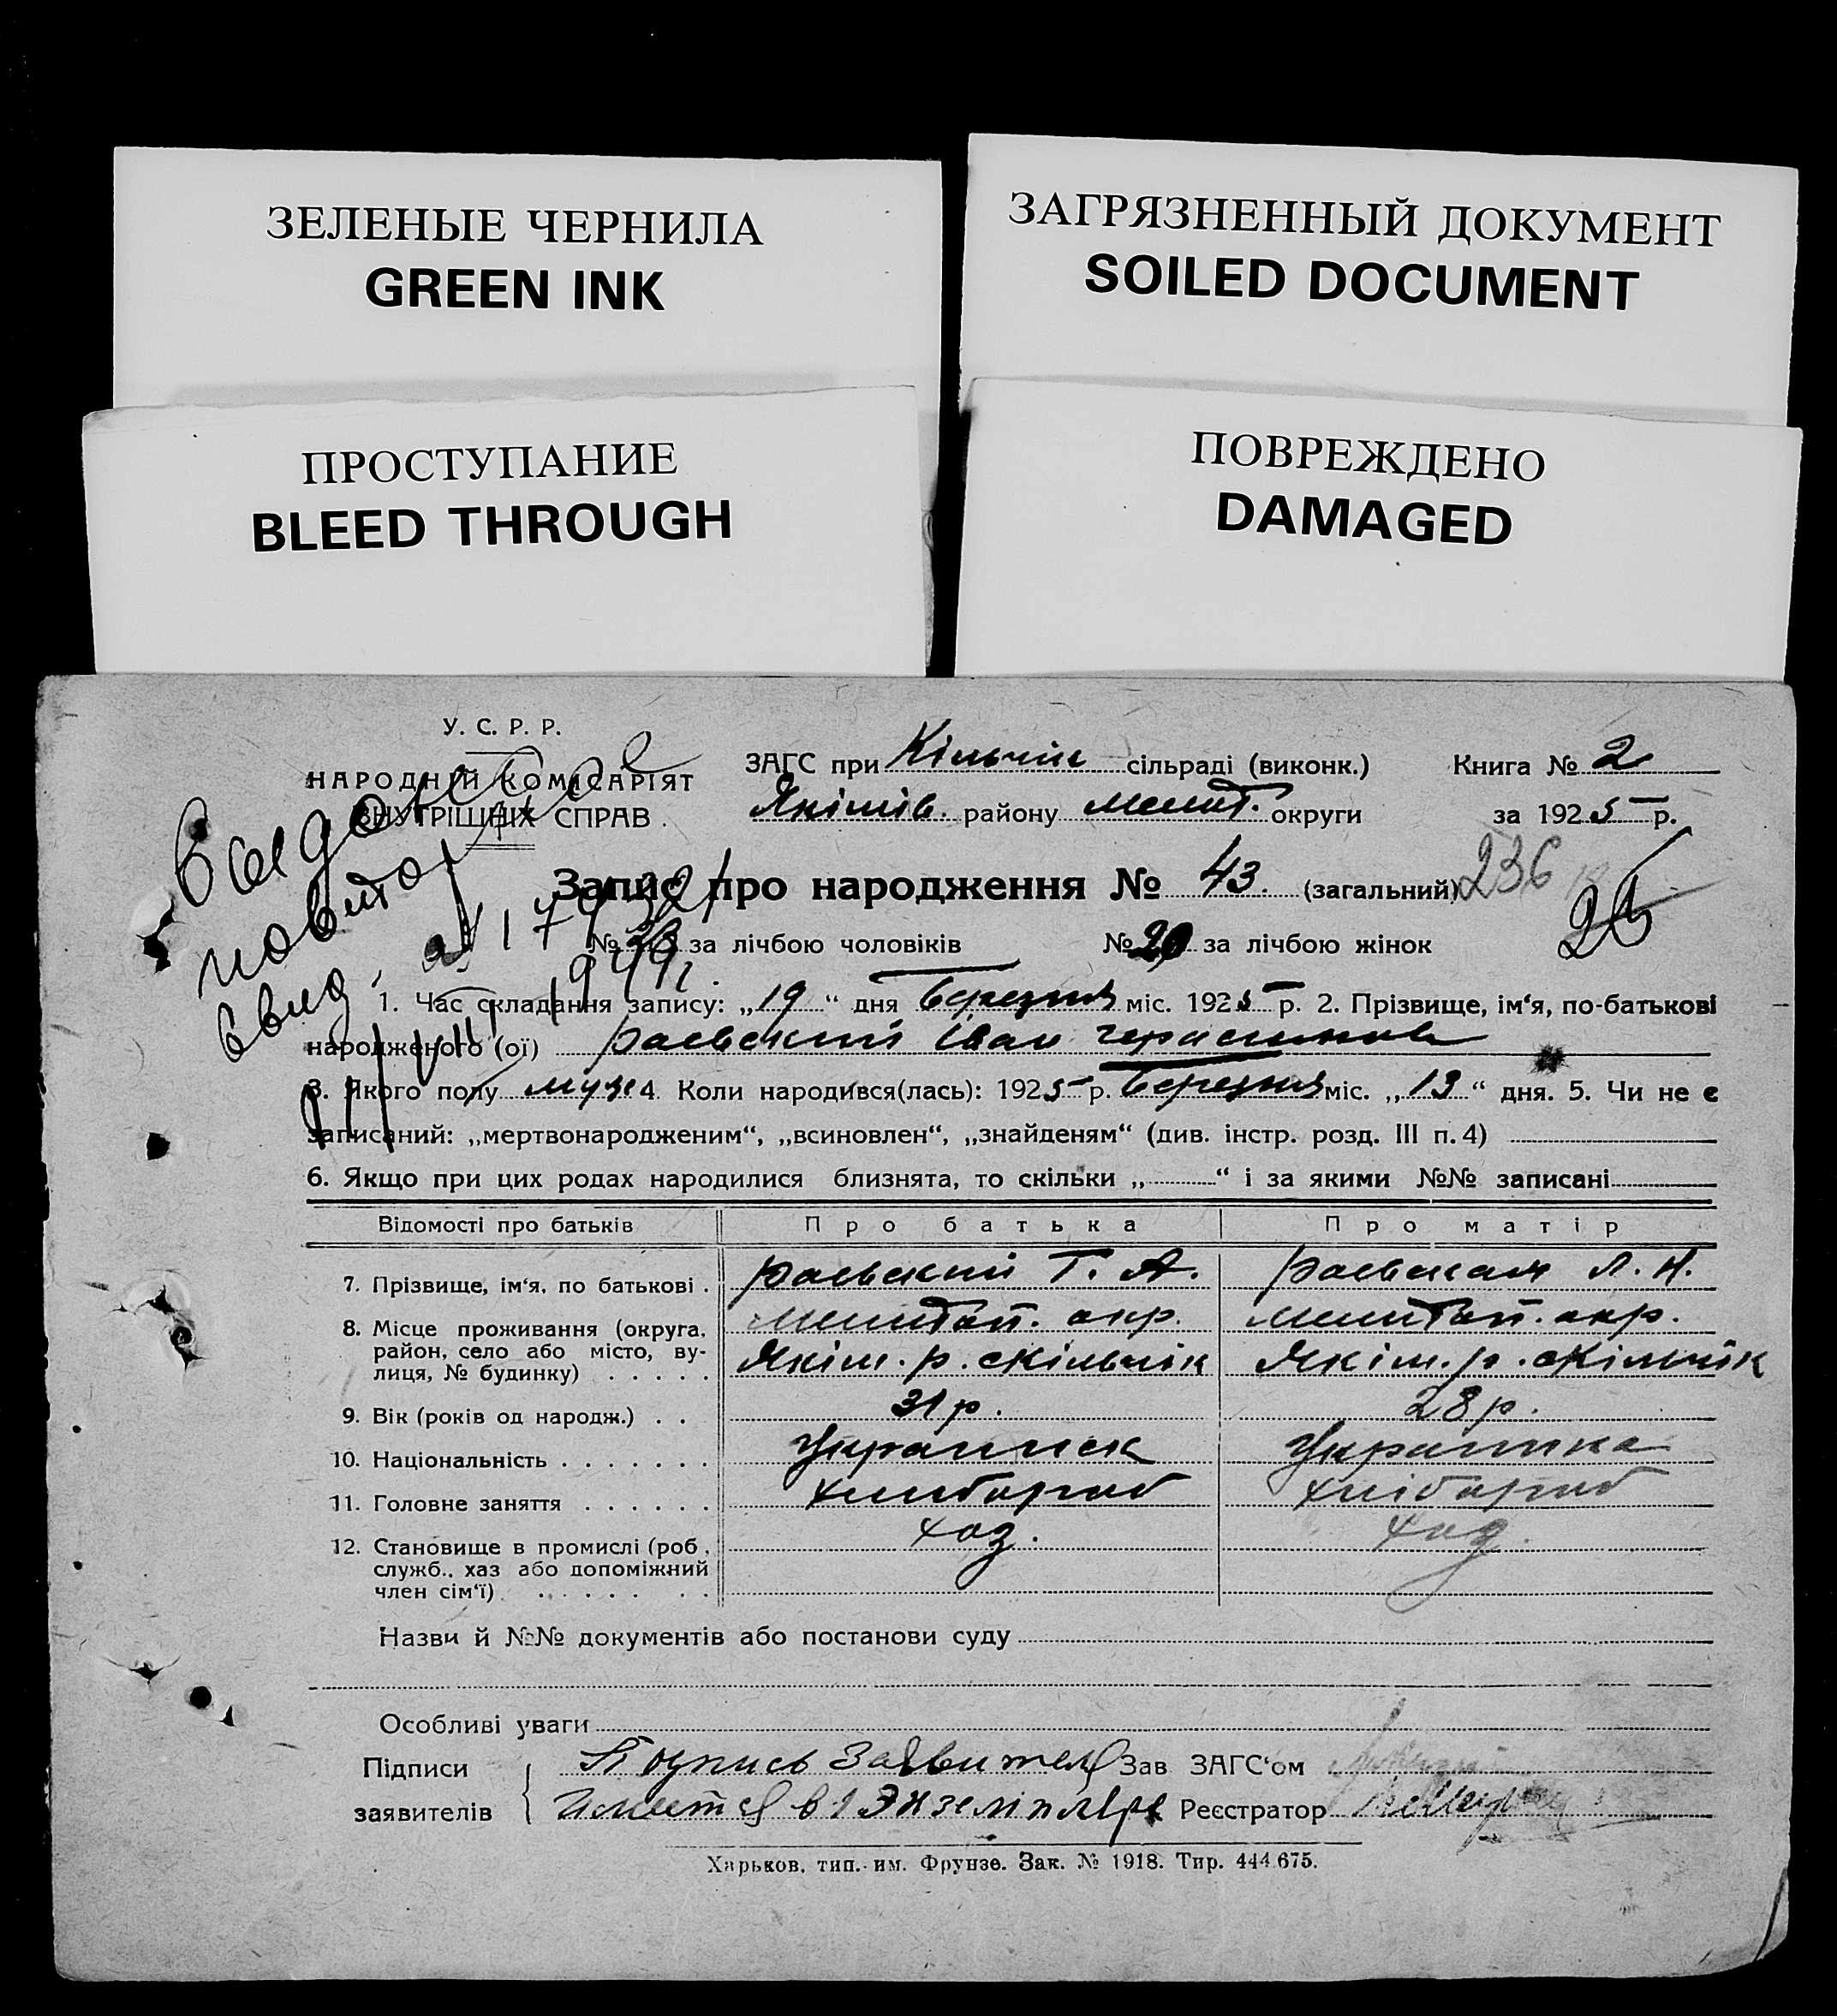 ЗЕЛЕНЫЕ ЧЕРНИЛА
GREEN INK
ЗАГРЯЗНЕННЫЙ ДОКУМЕНТ
SOILED DOCUMENT
ПРОСТУПАНИЕ
BLEED THROUGH
ПОВРЕЖДЕНО
DAMAGED
У. С. Р. Р.
НАРОДНІЙ КОМІСАРІЯТ
ВНУТРІШНІХ СПРАВ.
ЗАГС при Кільчік сільраді (виконк.)
Якімів. району Мелит. округи
Книга № 2
за 1925 р.
повтор
Запис про народження № 43. (загальний) 236
№ 23 за лічбою чоловіків № 20 за лічбою жінок
1. Час складання запису: „19“ дня Березня міс. 1925 р. 2. Прізвище, ім‘я, по-батькові
народженого (ої) Раевский Іван Герасимов
3. Якого полу муж 4. Коли народився(лась): 1925 р. Березня міс. „13“ дня. 5. Чи не є
записаний: „мертвонародженим“, „всиновлен“, „знайденям“ (див. інстр. розд. III п. 4)
6. Якщо при цих родах народилися близнята, то скільки „ “ і за якими №№ записані
Відомості про батьків Про батька Про матір
7. Прізвище, ім‘я, по батькові . Раевский Г. А. Раевская Л. Н.
8. Місце проживання (округа, Мелитоп. окр. Мелитоп. окр.
район, село або місто, ву- Якім. р. с Кільчік Якім. р. с Кільчік
лиця, № будинку) . . . . .
9. Вік (років од народж.) . . 31 р. 28 р.
10. Національність . . . . . . . Украинск Украинка
11. Головне заняття . . . . . . хлибороб хлібороб
12. Становище в промислі (роб, хаз. хаз.
служб., хаз або допоміжний
член сім‘ї)
Назви й №№ документів або постанови суду
Особливі уваги
Підписи Подпись Заявителя Зав ЗАГС‘ом
заявителів Имеется в 1 Экземпляре Реєстратор
Харьков, тип. им. Фрунзе. Зак. № 1918. Тир. 444.675.